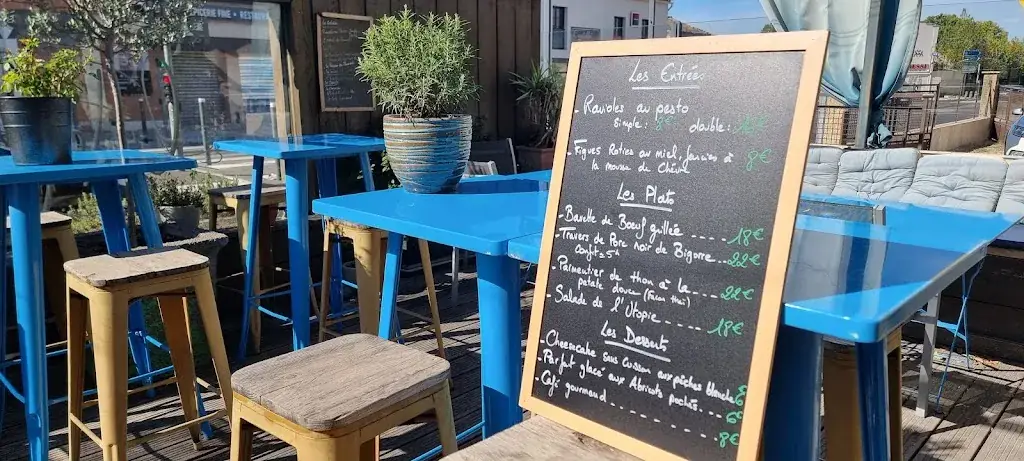 ÉPICERIE FINE - RESTAU
Les Entrées
- Ravioles au pesto
simple : 8€ double : 16€
- Figues Roties au miel, farcies à
la mousse de Chèvre 8€
Les Plats
- Bavette de Boeuf grillée ...... 18€
- Travers de Porc noir de Bigorre .. 22€
confit
- Parmentier de thon à la
patate douce (Thon frais) ...... 22€
- Salade de l'Utopie ...... 18€
Les Desserts
- Cheesecake sous cuisson aux pêches blanches 8
- Parfait glacé aux Abricots pochés ... 6€
- Café gourmand ............ 8€